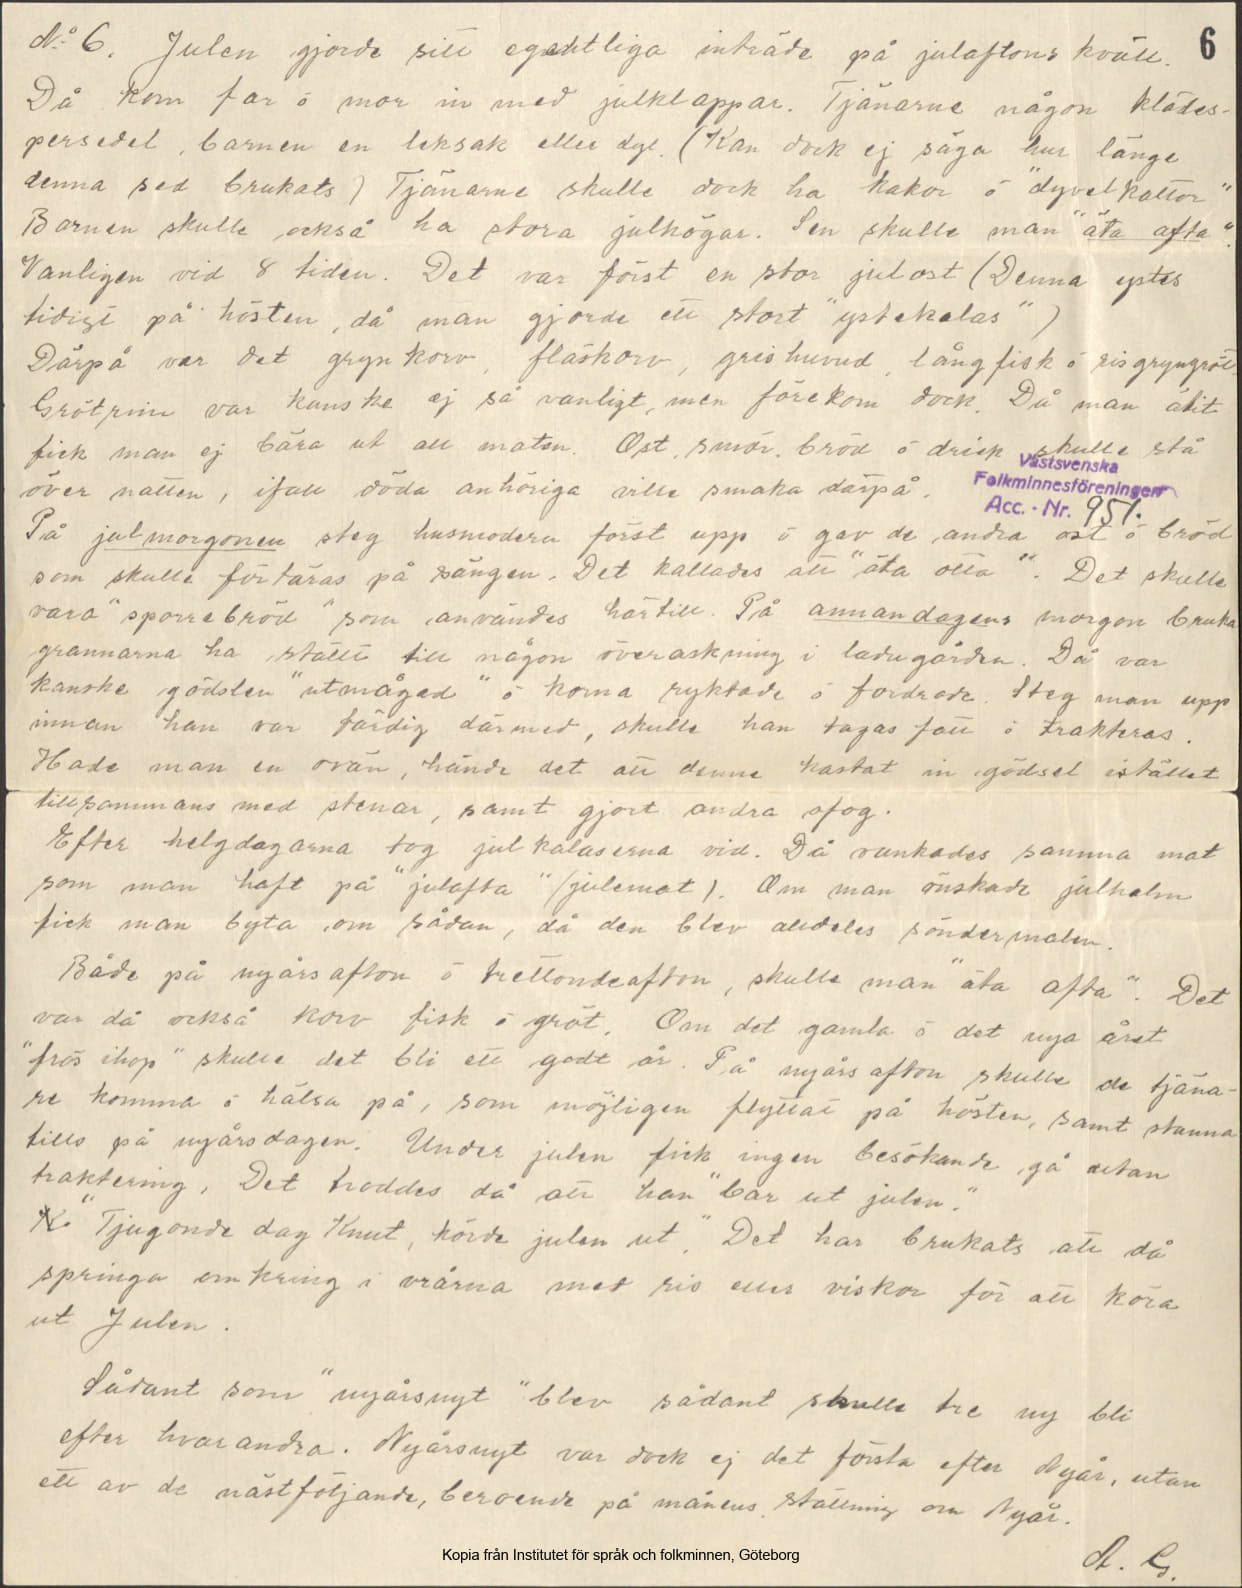 No 6. Julen gjorde sitt egentliga inträde på julaftons kväll.
6
Då kom far o mor in med julklappar. Tjänarne någon klädes-
persedel, barnen en leksak eller dyl. (Kan dock ej säga hur länge
denna sed brukats) Tjänarne skulle dock ha kakor o "dyvelkattor"
Barnen skulle också ha stora julhögar. Sen skulle man "äta afta".
Vanligen vid 8 tiden. Det var först en stor julost (Denna ystes
tidigt på hösten, då man gjorde ett stort "ystekalas")
Därpå var det grynkorv, fläskorv, grishuvud, långfisk o risgryngröt
Grötrim var kanske ej så vanligt, men förekom dock. Då man ätit
fick man ej bära ut all maten. Ost, smör, bröd o drick skulle stå
över natten, ifall döda anhöriga ville smaka därpå.
Västsvenska
Folkminnesföreningen
Acc. - Nr. 951.
På julmorgonen steg husmodern först upp o gav de andra ost o bröd
som skulle förtäras på sängen. Det kallades att "äta otta". Det skulle
vara "sporrebröd" som användes härtill. På annandagens morgon bruka
grannarna ha ställt till någon överaskning i ladugården. Då var
kanske gödslen "utmågad" o korna ryktade o fordrade. Steg man upp
innan han var färdig därmed, skulle han tagas fatt o trakteras.
Hade man en ovän, hände det att denne kastat in gödsel istället
tillsammans med stenar, samt gjort andra ofog.
Efter helgdagarna tog julkalaserna vid. Då vankades samma mat
som man haft på "julafta" (julemat). Om man önskade julhalm
fick man byta om sådan, då den blev alldeles söndermalen.
Både på nyårsafton o trettondeafton, skulle man "äta afta". Det
var då också korv fisk o gröt. Om det gamla o det nya året
"frös ihop" skulle det bli ett godt år. På nyårsafton skulle de tjäna-
re komma o hälsa på, som möjligen flyttat på hösten, samt stanna
tills på nyårsdagen. Under julen fick ingen besökande gå utan
traktering. Det troddes då att han "bar ut julen."
"Tjugonde dag Knut, körde julen ut." Det har brukats att då
springa omkring i vrårna med ris eller viskor för att köra
ut Julen.
Sådant som "nyårsnyt" blev sådant skulle tre ny bli
efter hvarandra. Nyårsnyt var dock ej det första efter Nyår, utan
ett av de nästföljande, beroende på månens ställning om Nyår.
A. G.
Kopia från Institutet för språk och folkminnen, Göteborg